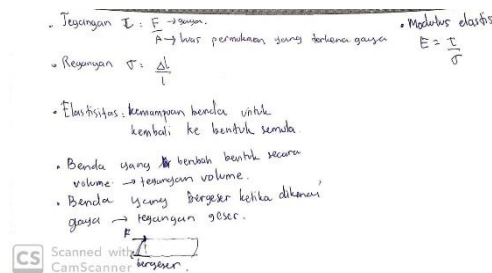 • Tegangan τ : F → gaya.
A → luas permukaan yang terkena gaya
• Regangan σ : Δl
l
• Elastisitas : kemampuan benda untuk
kembali ke bentuk semula.
• Benda yang berubah bentuk secara
volume → tegangan volume.
• Benda yang bergeser ketika dikenai
gaya → tegangan geser.
F
bergeser.
• Modulus elastis
E = τ
σ
CS Scanned with
CamScanner